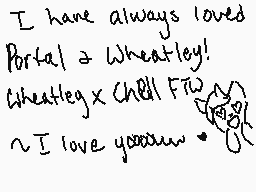 I have always loved
Portal 2 Wheatley!
Wheatley x Chell FTW
~I love yooouuu